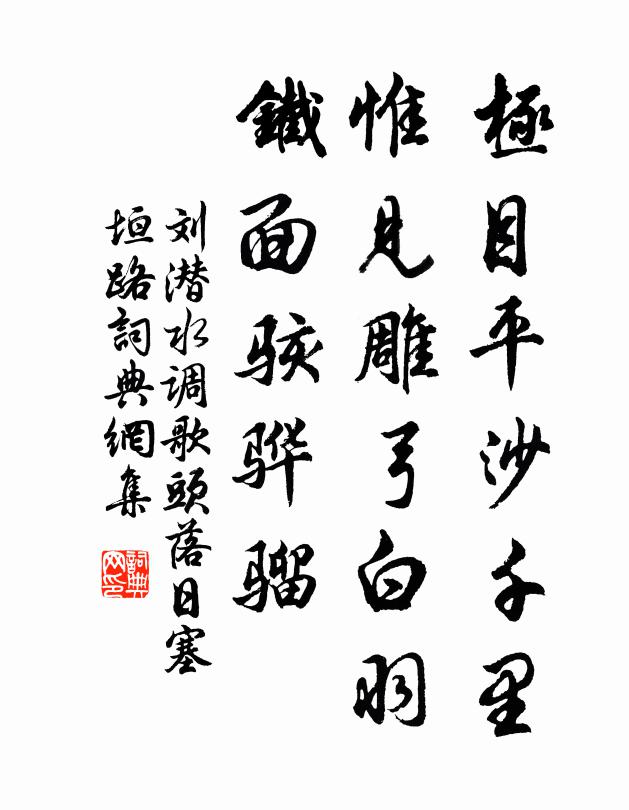 極目平沙千里
惟見雕弓白羽
鐵面骇骅骝
刘潜水调歌頭落日塞
垣路詞典網集
詞典网印